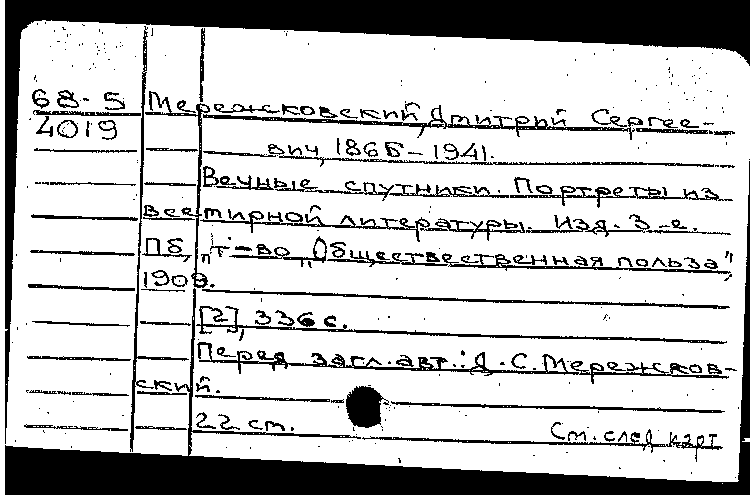 68-5 Мережковский, Дмитрий Сергее-
4019
вич, 1865-1941.
Вечные спутники. Портреты из
всемирной литературы. Изд. 3-е.
Пб, "т-во "Общественная польза",
1909.
[2], 336 с.
Перед загл. авт.: Д. С. Мережков-
ский.
22 см.
См. след. карт